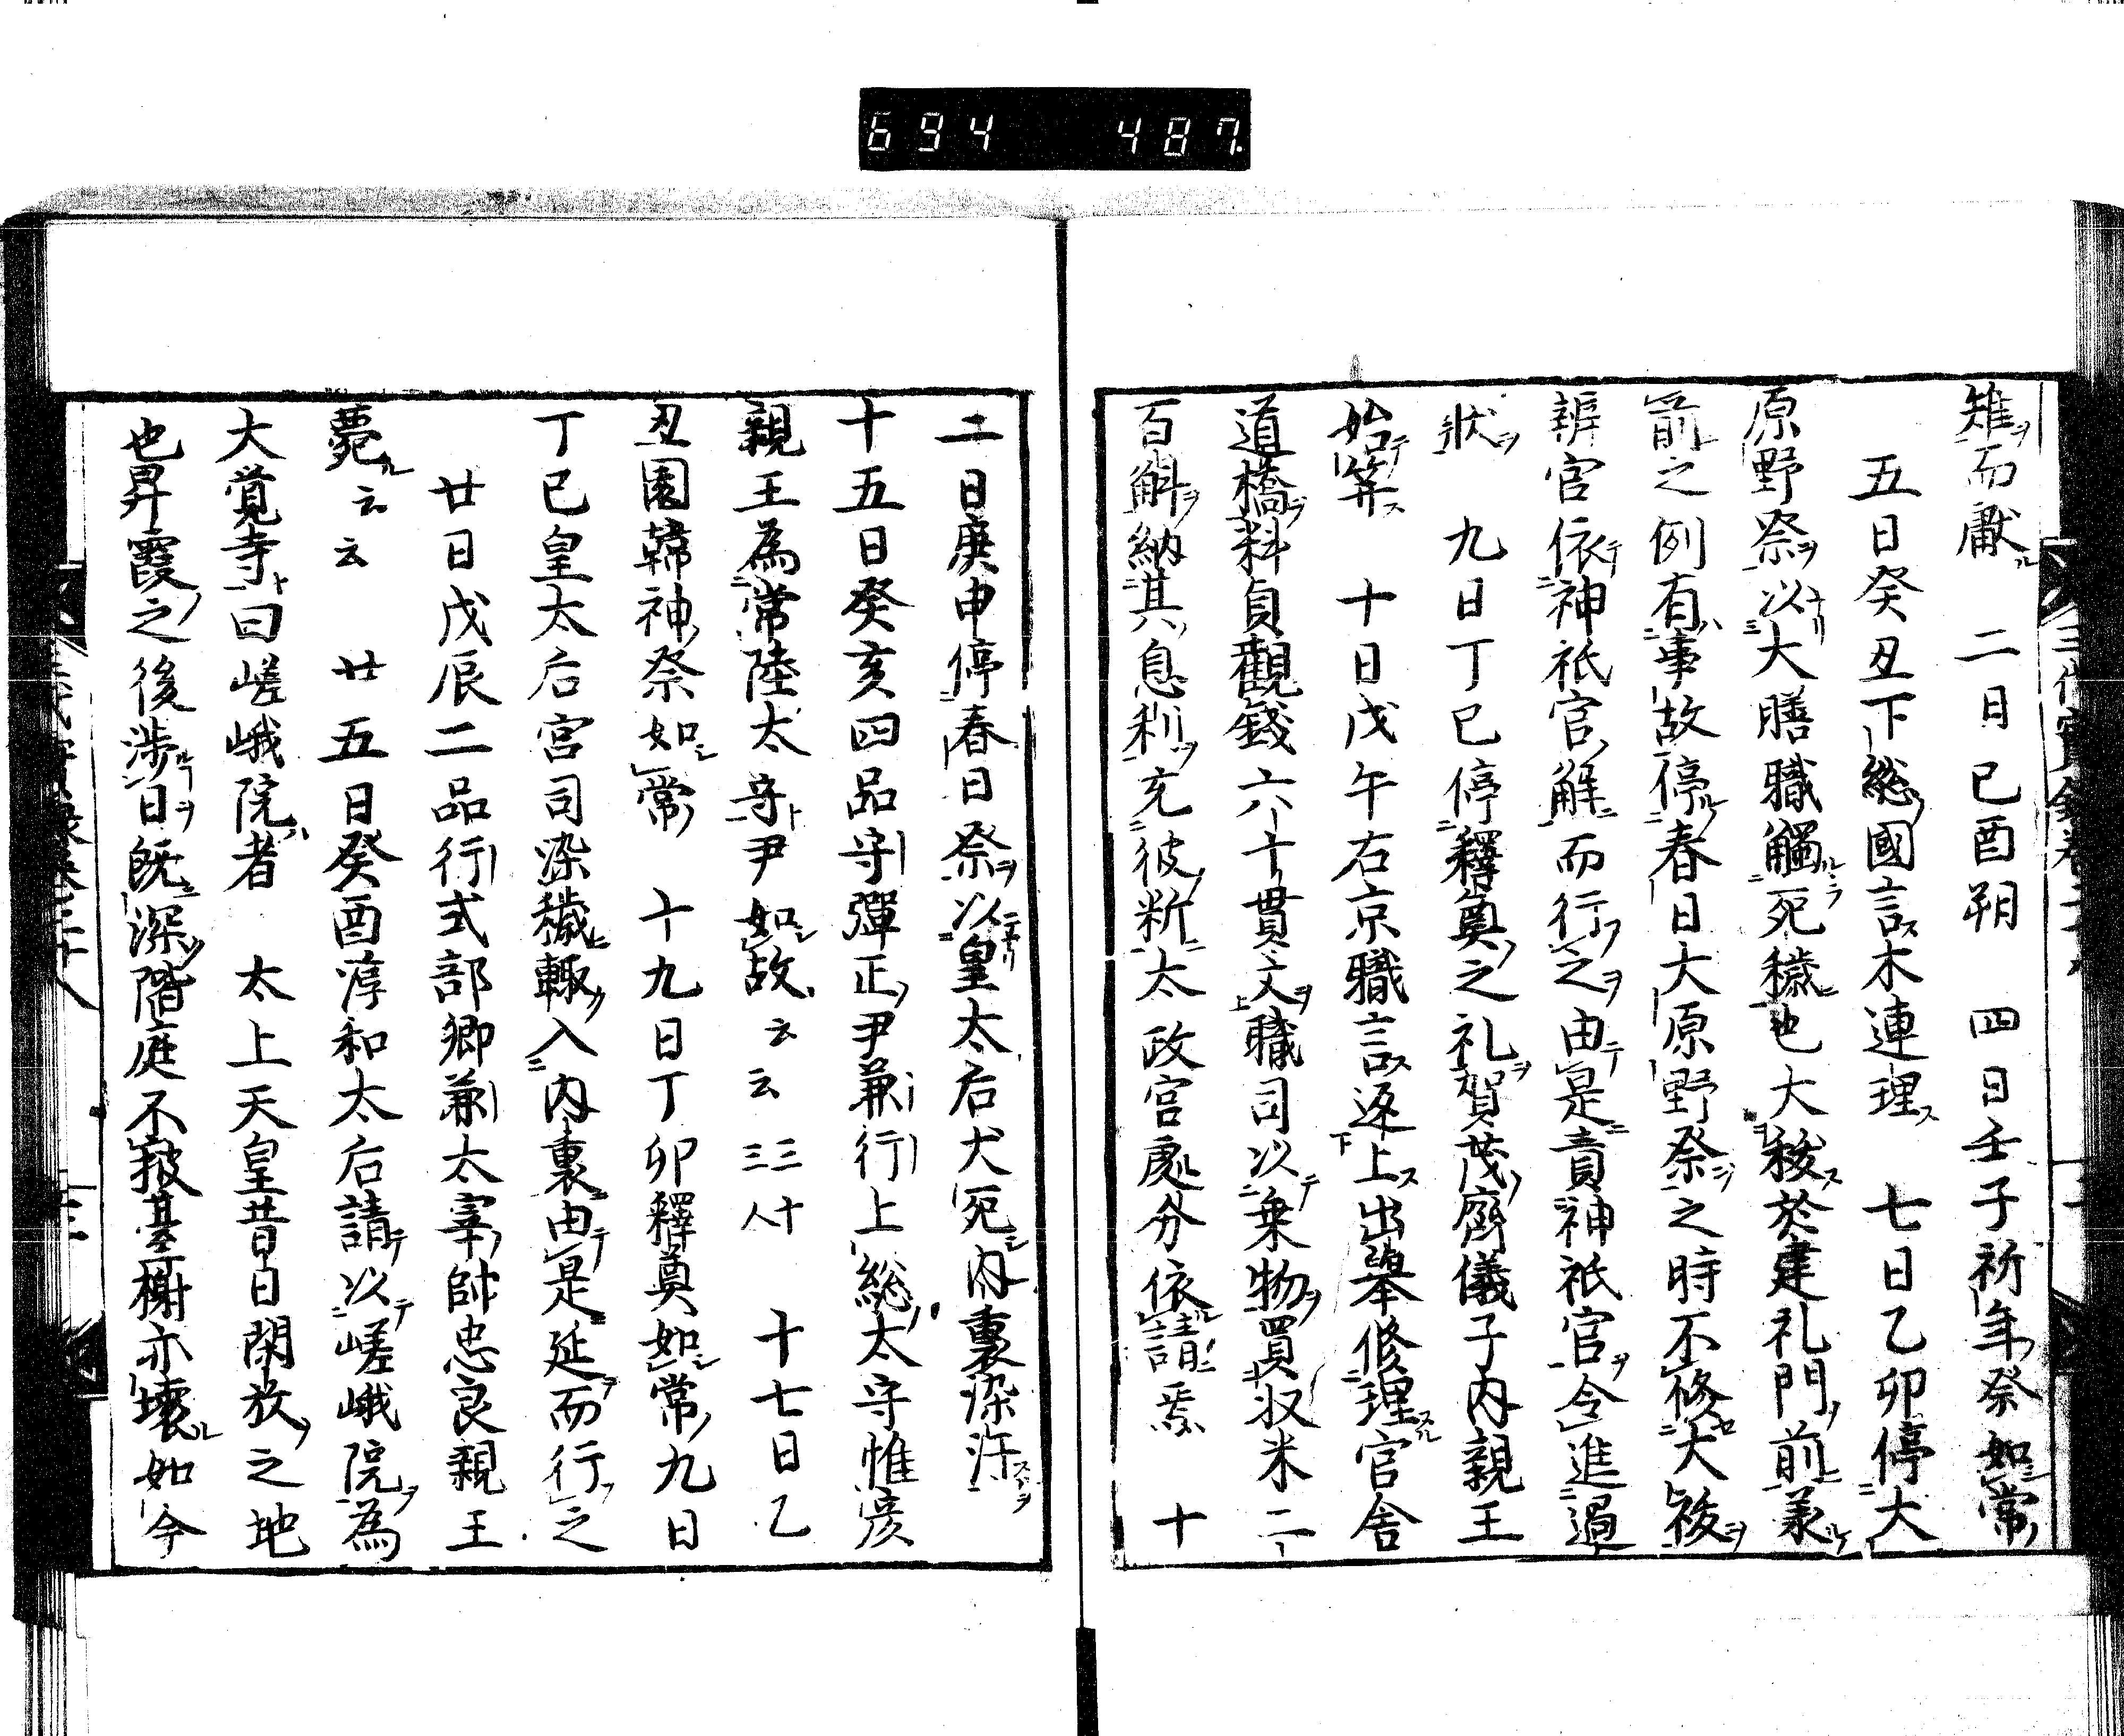 694 487
雉而獻 二日己酉朔 四日壬子祈年祭如常
五日癸丑下総國言木連理 七日乙卯停大
原野祭以大膳職觸死穢也大秡於建礼門前
前之例有事故停春日大原野祭之時不修大祓
辨官依神祇官解而行之由是責神祇官令進過
狀 九日丁巳停釋奠之礼賀茂齋儀子内親王
始笄 十日戊午右京職言返上出舉修理官舍
道橋料貞觀錢六十貫文職司以乗物買收米二
百斛納其息利充彼析太政官處分依請焉 十
二日庚申停春日祭以皇太后犬死内裏染汚
十五日癸亥四品守彈正尹兼行上総太守惟彦
親王為常陸太守尹如故云云三十三人 十七日乙
丑園韓神祭如常 十九日丁卯釋奠如常九日
丁巳皇太后宮司染穢輙入内裏由是延而行之
廿日戊辰二品行式部卿兼太宰帥忠良親王
薨云云 廿五日癸酉淳和太后請以嵯峨院為
大覚寺曰嵯峨院者 太上天皇昔日閑放之地
也昇霞之後渉日既深階庭不掃臺榭亦壊如今